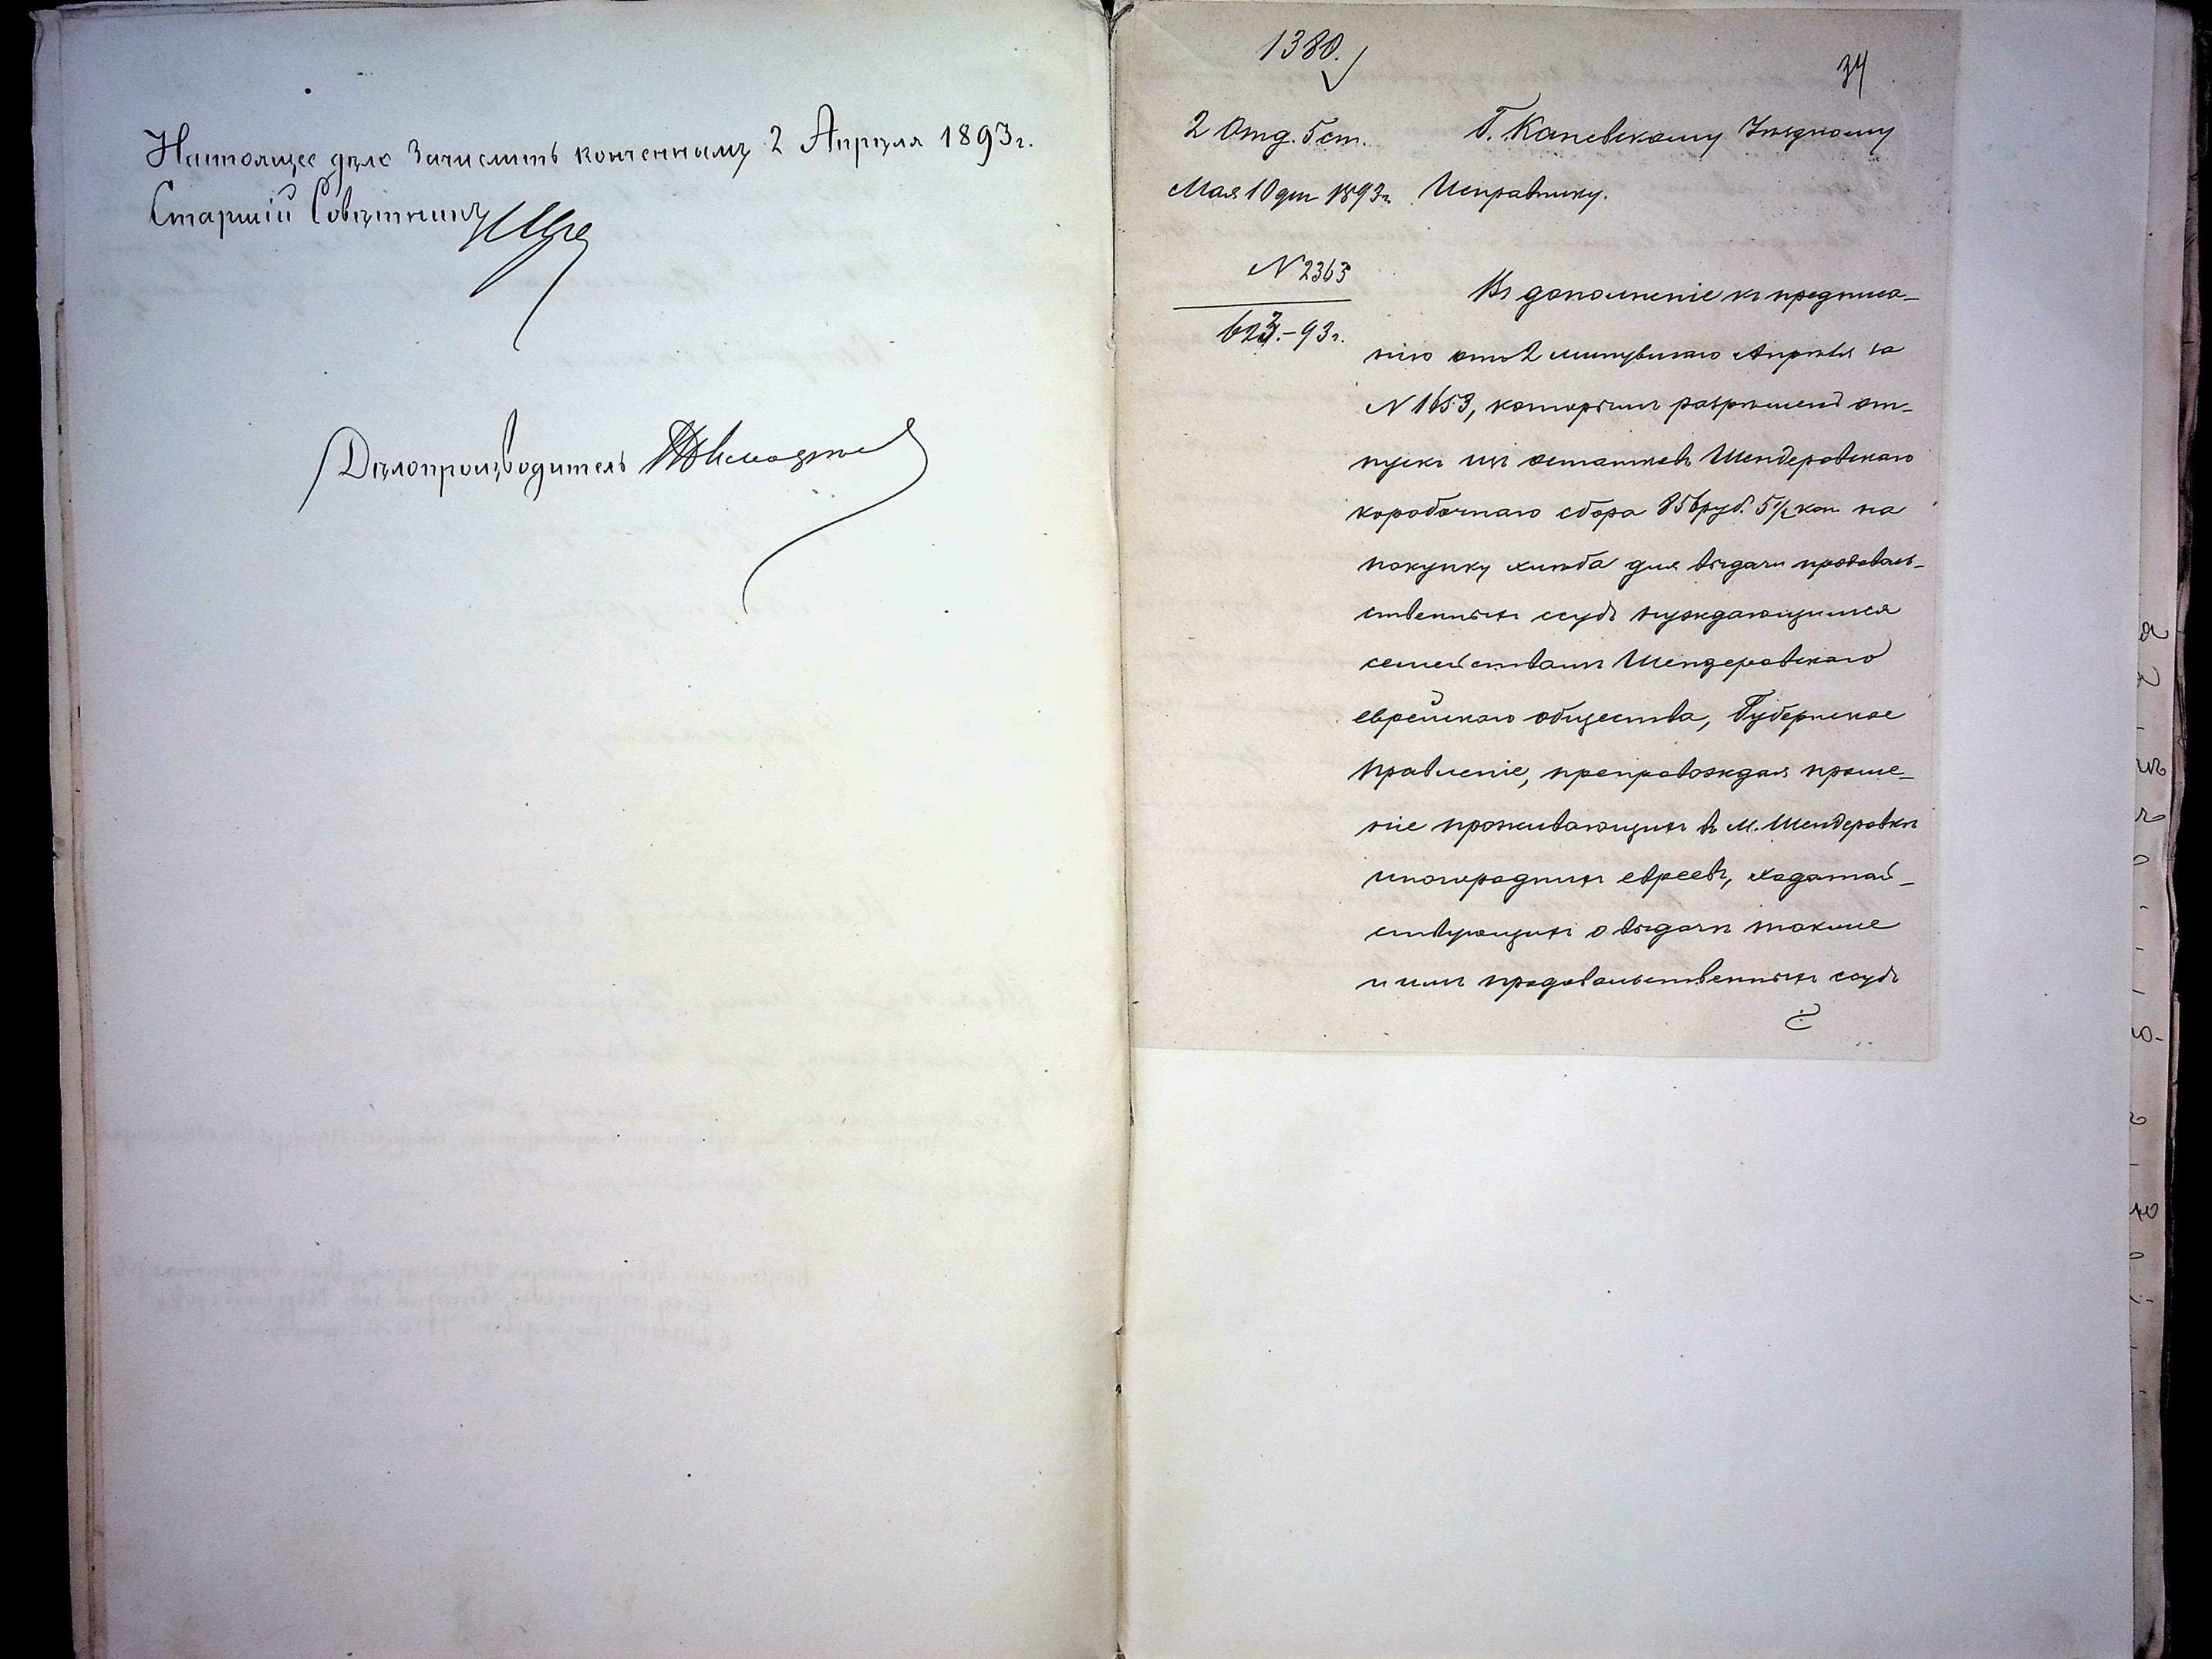 Настоящее дѣло зачислить конченнымъ 2 Апрѣля 1893 г.
Старшій Совѣтникъ
Дѣлопроизводитель
1380.
34
2 Отд. 5 ст.
Мая 10 дня 1893 г.
N 2363
623.-93 г.
Г. Каневскому Уѣздному
Исправнику.
Въ дополненіе къ предписа-
нію отъ 2 минувшаго Апрѣля за
N 1653, которымъ разрѣшенъ от-
пускъ изъ остатковъ Шендеровскаго
коробочнаго сбора 856 руб. 5½ коп на
покупку хлѣба для выдачи продоволь-
ственныхъ ссудъ нуждающимся
семействамъ Шендеровскаго
еврейскаго общества, Губернское
Правленіе, препровождая проше-
ніе проживающихъ въ м. Шендеровкѣ
иногородныхъ евреевъ, ходатай-
ствующихъ о выдачѣ также
и имъ продовольственныхъ ссудъ